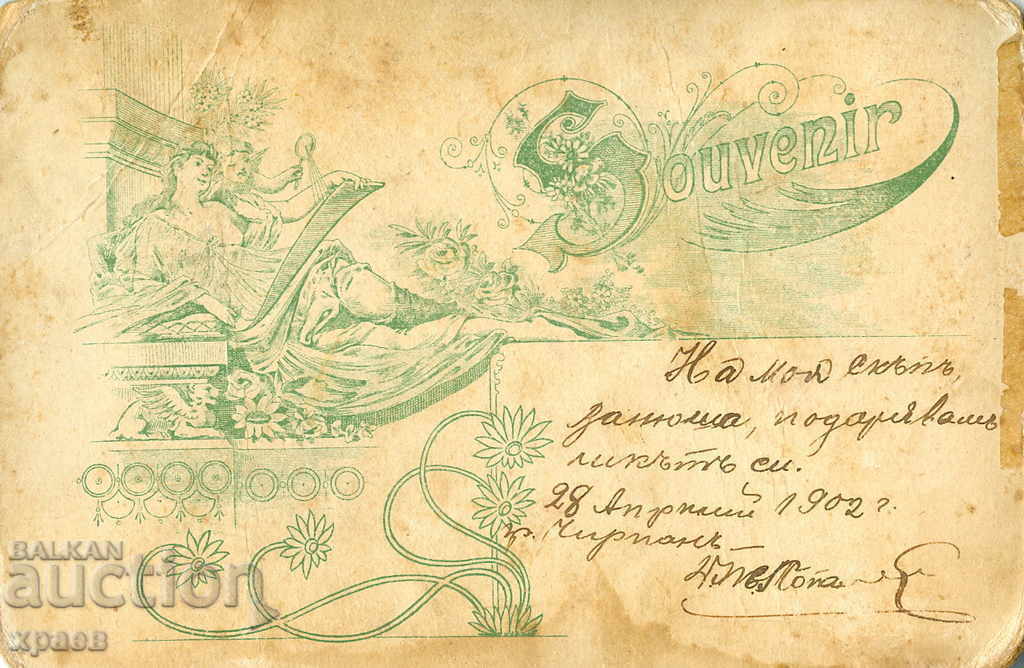 Souvenir
На моя скъпъ,
подарявамъ
ликътъ си.
28 Априлий 1902 г.
гр. Чирпанъ
BALKAN
auction
храсв